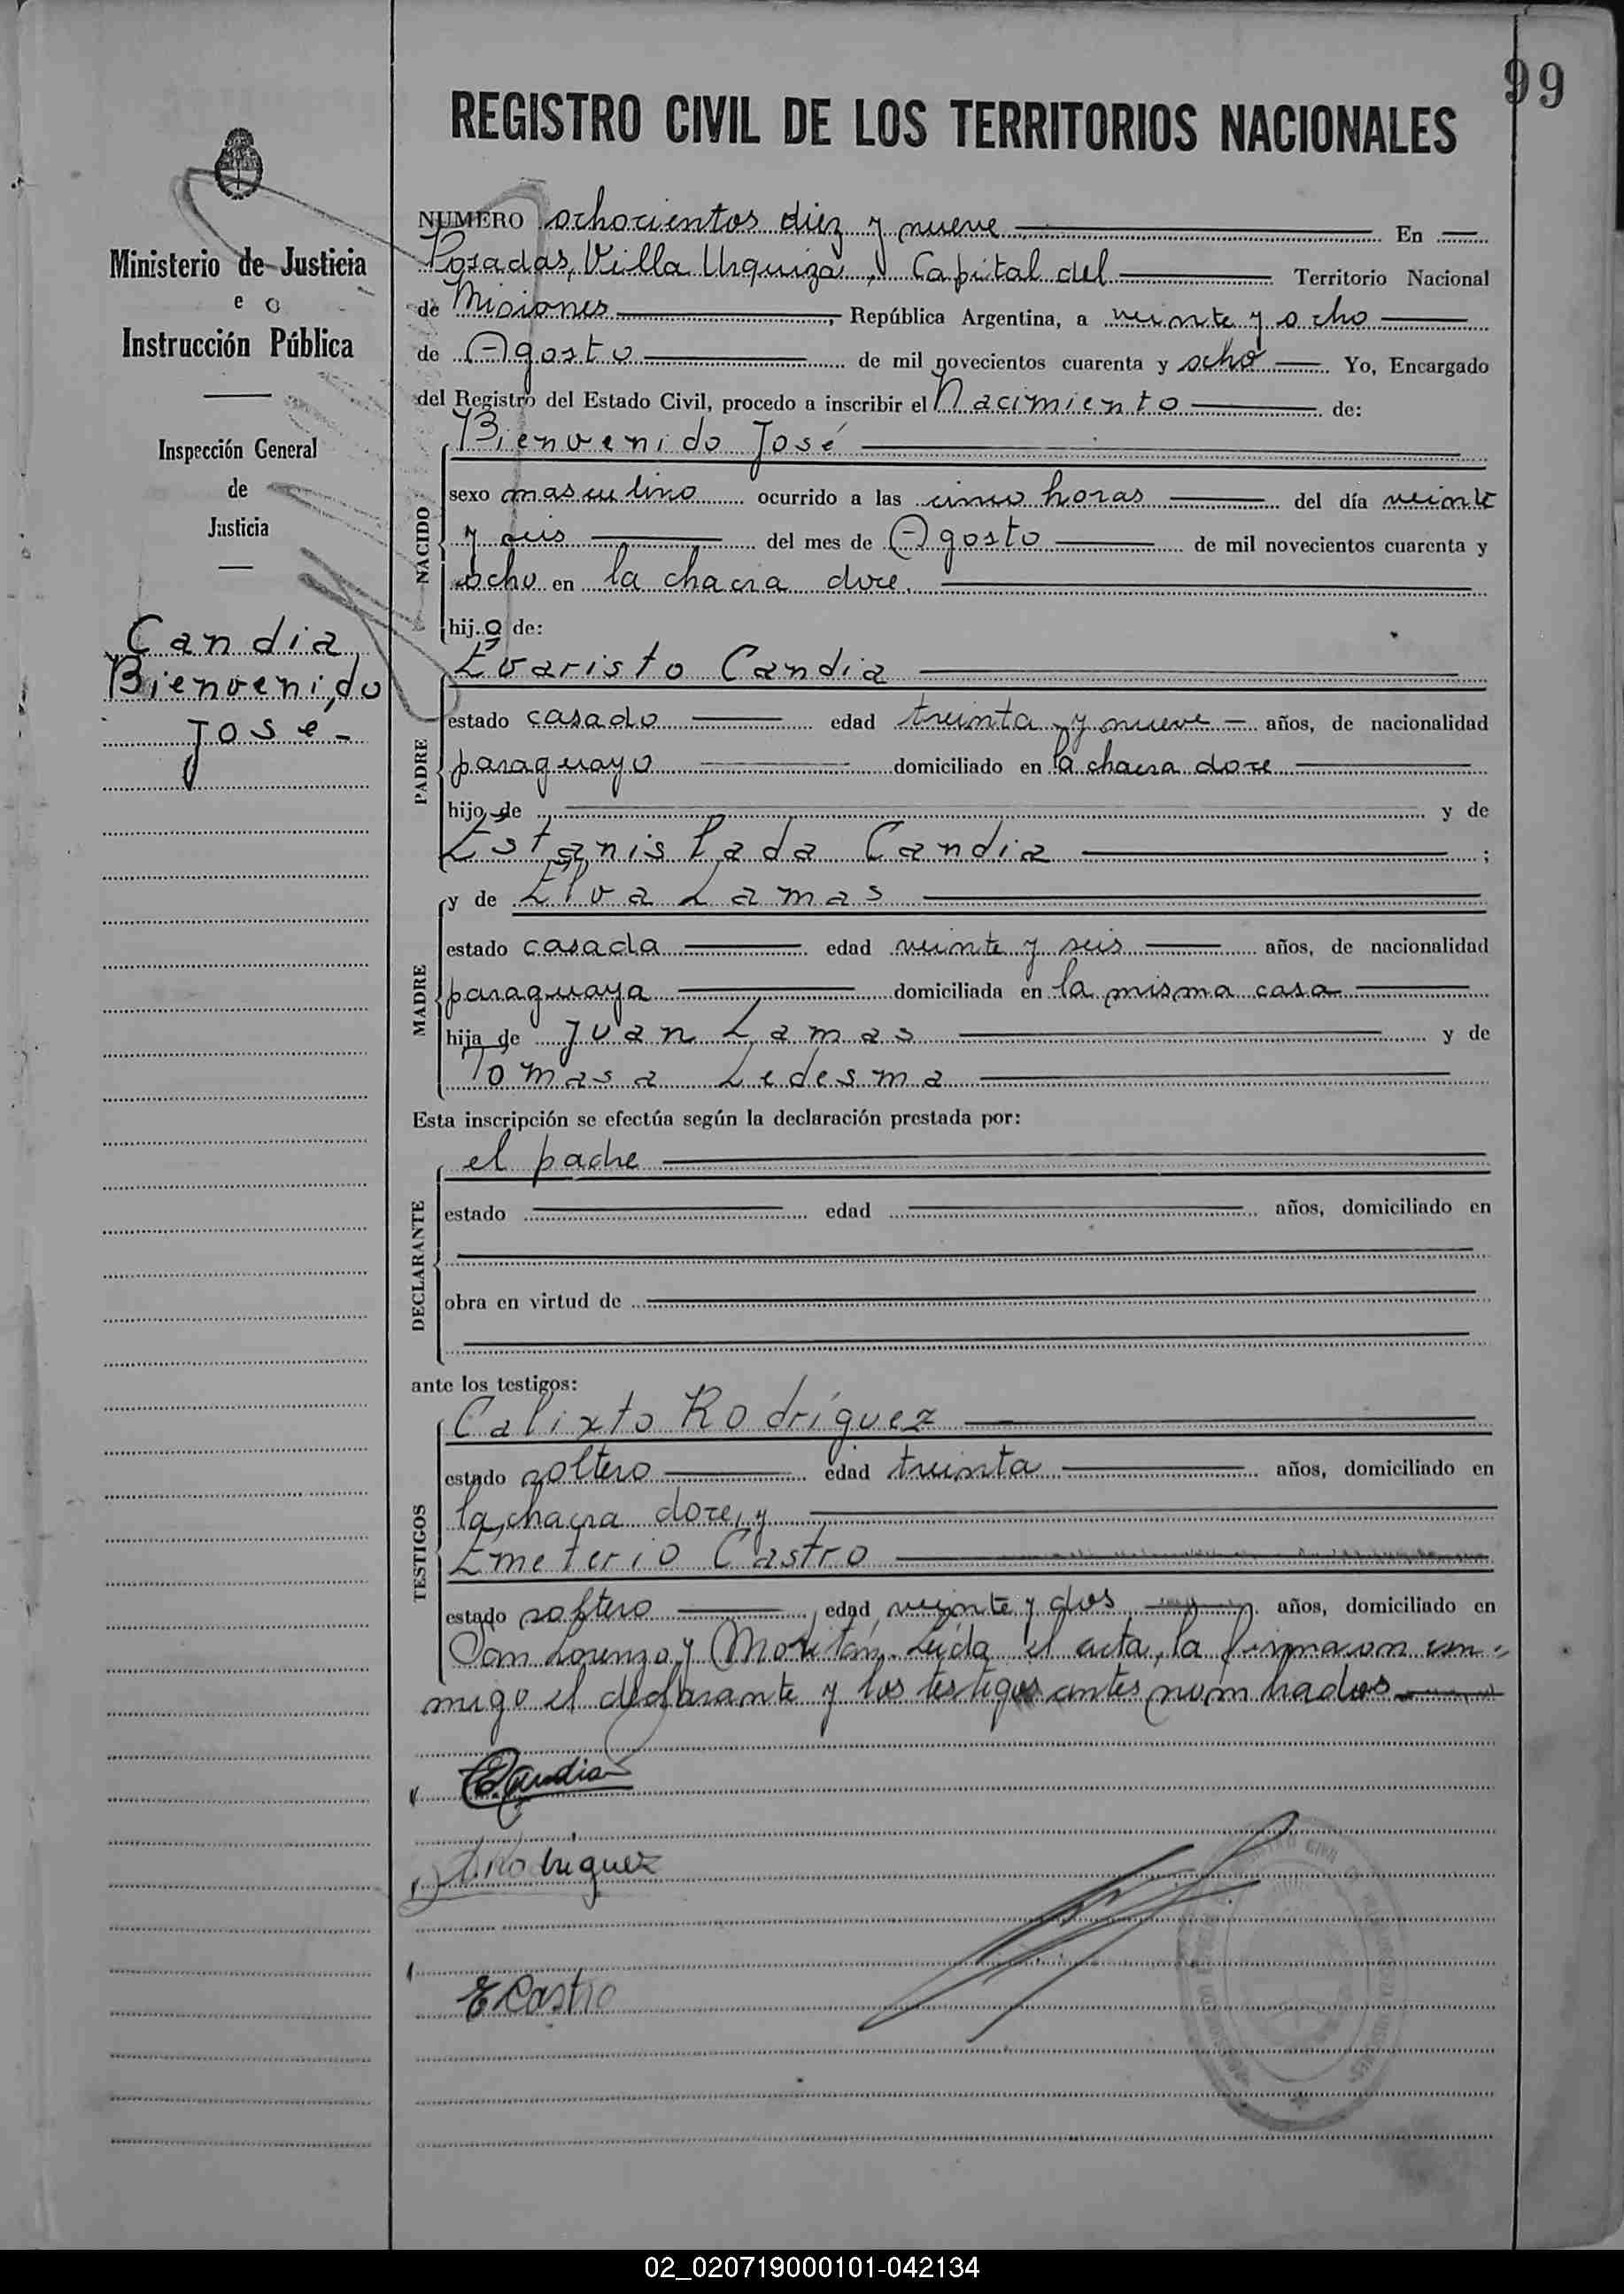 99
REGISTRO CIVIL DE LOS TERRITORIOS NACIONALES
Ministerio de Justicia
e
Instrucción Pública
Inspección General
de
Justicia
Candia
Bienvenido
José-
NUMERO ochocientos diez y nueve En
Posadas, Villa Urquiza, Capital del Territorio Nacional
de Misiones, República Argentina, a veinte y ocho
de Agosto de mil novecientos cuarenta y ocho Yo, Encargado
del Registro del Estado Civil, procedo a inscribir el Nacimiento de:
Bienvenido José
NACIDO
sexo masculino ocurrido a las cinco horas del día veinte
y seis del mes de Agosto de mil novecientos cuarenta y
ocho en la chacra doce.
hijo de:
Evaristo Candia
PADRE
estado casado edad treinta y nueve años, de nacionalidad
paraguayo domiciliado en la chacra doce
hijo de y de
Estanislada Candia ;
y de Elva Lamas
MADRE
estado casada edad veinte y seis años, de nacionalidad
paraguaya domiciliada en la misma casa
hija de Juan Lamas y de
Tomasa Ledesma
Esta inscripción se efectúa según la declaración prestada por:
el padre
DECLARANTE
estado edad años, domiciliado en
obra en virtud de
ante los testigos:
Calixto Rodríguez
TESTIGOS
estado soltero edad treinta años, domiciliado en
la chacra doce, y
Emeterio Castro
estado soltero edad veinte y dos años, domiciliado en
San Lorenzo y Moritán. Leída el acta, la firmaron con=
migo el declarante y los testigos antes nombrados
E. Candia
Rodriguez
E Castro
02_020719000101-042134